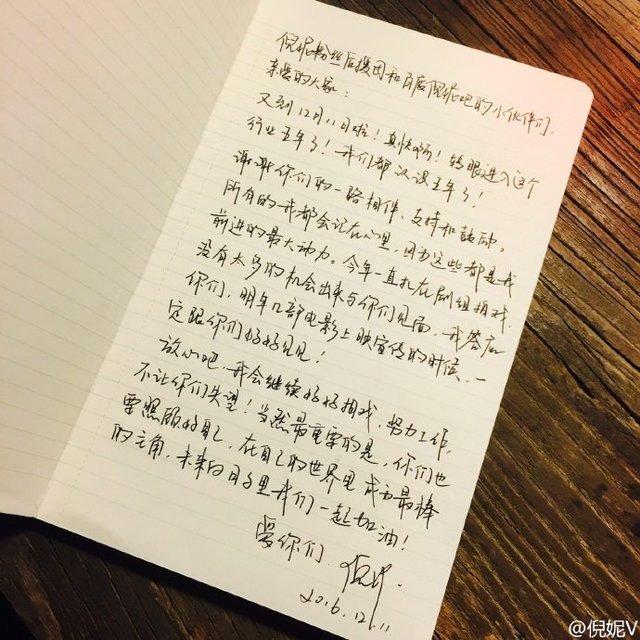 倪妮粉丝后援团和百度倪妮吧的小伙伴们,
亲爱的大家:
又到12月11日啦!真快啊!转眼进入这个
行业五年了!我们都认识五年了!
谢谢你们的一路相伴、支持和鼓励。
所有的我都会记在心里,因为这些都是我
前进的最大动力。今年一直扎在剧组拍戏,
没有太多的机会出来与你们见面,我答应
你们,明年几部电影上映宣传的时候,一
定跟你们好好见见!
放心吧,我会继续好好拍戏,努力工作,
不让你们失望!当然最重要的是,你们也
要照顾好自己,在自己的世界里成为最棒
的主角,未来的日子里我们一起加油!
爱你们,倪妮.
2016.12.11
@倪妮V